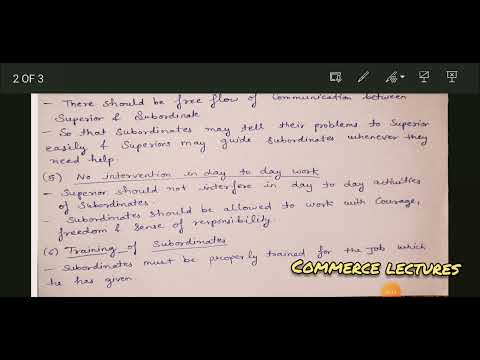 2 OF 3
- There should be free flow of Communication between
Superior & Subordinate
- So that Subordinates may tell their problems to Superior
easily & Superiors may guide subordinates whenever they
need help.
(5) No intervention in day to day work
- Superior should not interfere in day to day activities
of Subordinates.
- Subordinates should be allowed to work with Courage,
freedom & sense of responsibility.
(6) Training of Subordinates
- Subordinates must be properly trained for the job which
he has given
COMMERCE LECTURES